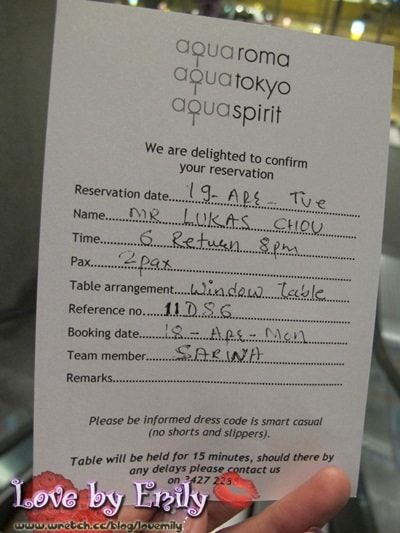 aquaroma
aquatokyo
aquaspirit
We are delighted to confirm
your reservation
Reservation date 19-APR-Tue
Name MR LUKAS CHOU
Time 6 Return 8pm
Pax 2pax
Table arrangement Window table
Reference no. 11DSG
Booking date 18-APR-Mon
Team member SARINA
Remarks
Please be informed dress code is smart casual
(no shorts and slippers).
Table will be held for 15 minutes, should there by
any delays please contact us
on 3427 228
Love by Emily
www.wretch.cc/blog/lovemily